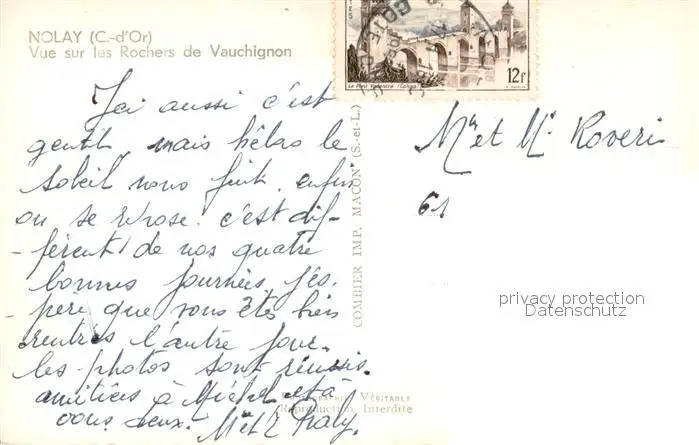 NOLAY (C.-d'Or)
Vue sur les Rochers de Vauchignon
12f
Le Pont Valentré (Cahors)
Ici aussi c'est
gentil, mais hélas le
soleil nous fuit. enfin
on se repose. c'est dif-
-férent de nos quatre
bonnes journées. j'es-
-père que vous êtes bien
rentrés l'autre jour.
les photos sont réussis.
amitiés à Michel et à
vous deux.
COMBIER IMP. MACON (S.-et-L.)
VÉRITABLE
Reproduction Interdite
Mr et Me Roveri
61
privacy protection
Datenschutz